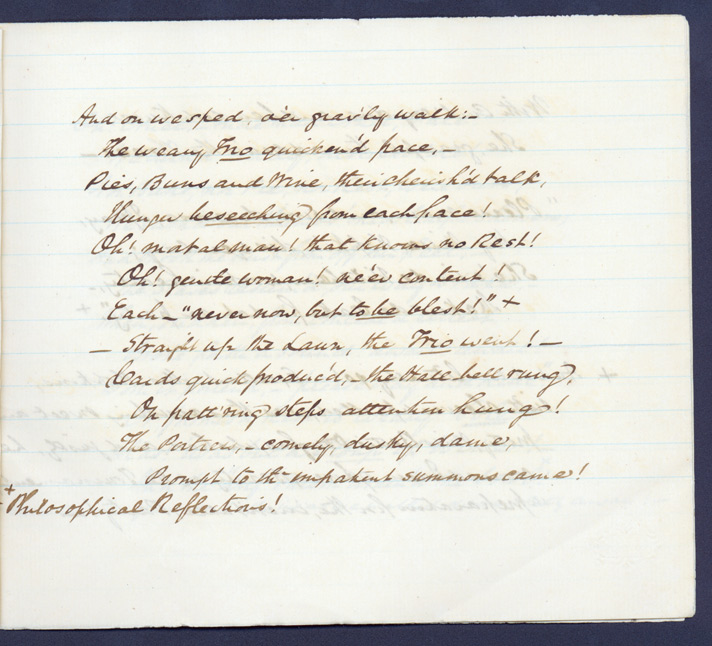 And on we sped o'er grav'ly walk:–
The weary Trio quicken'd pace,–
Pies, Buns and Wine, their cherish'd talk,
Hunger beseeching from each face!
Oh! mortal man! that knows no Rest!
Oh! gentle woman! ne'er content!
Each – "never now, but to be blest!" +
– Straight up the Lawn, the Trio went! –
Cards quick produc'd, – the Hall-bell rung,
On patt'ring steps attention hung!
The Portress, – comely, dusky, dame,
Prompt to th' impatient summons came!
+ Philosophical Reflections!